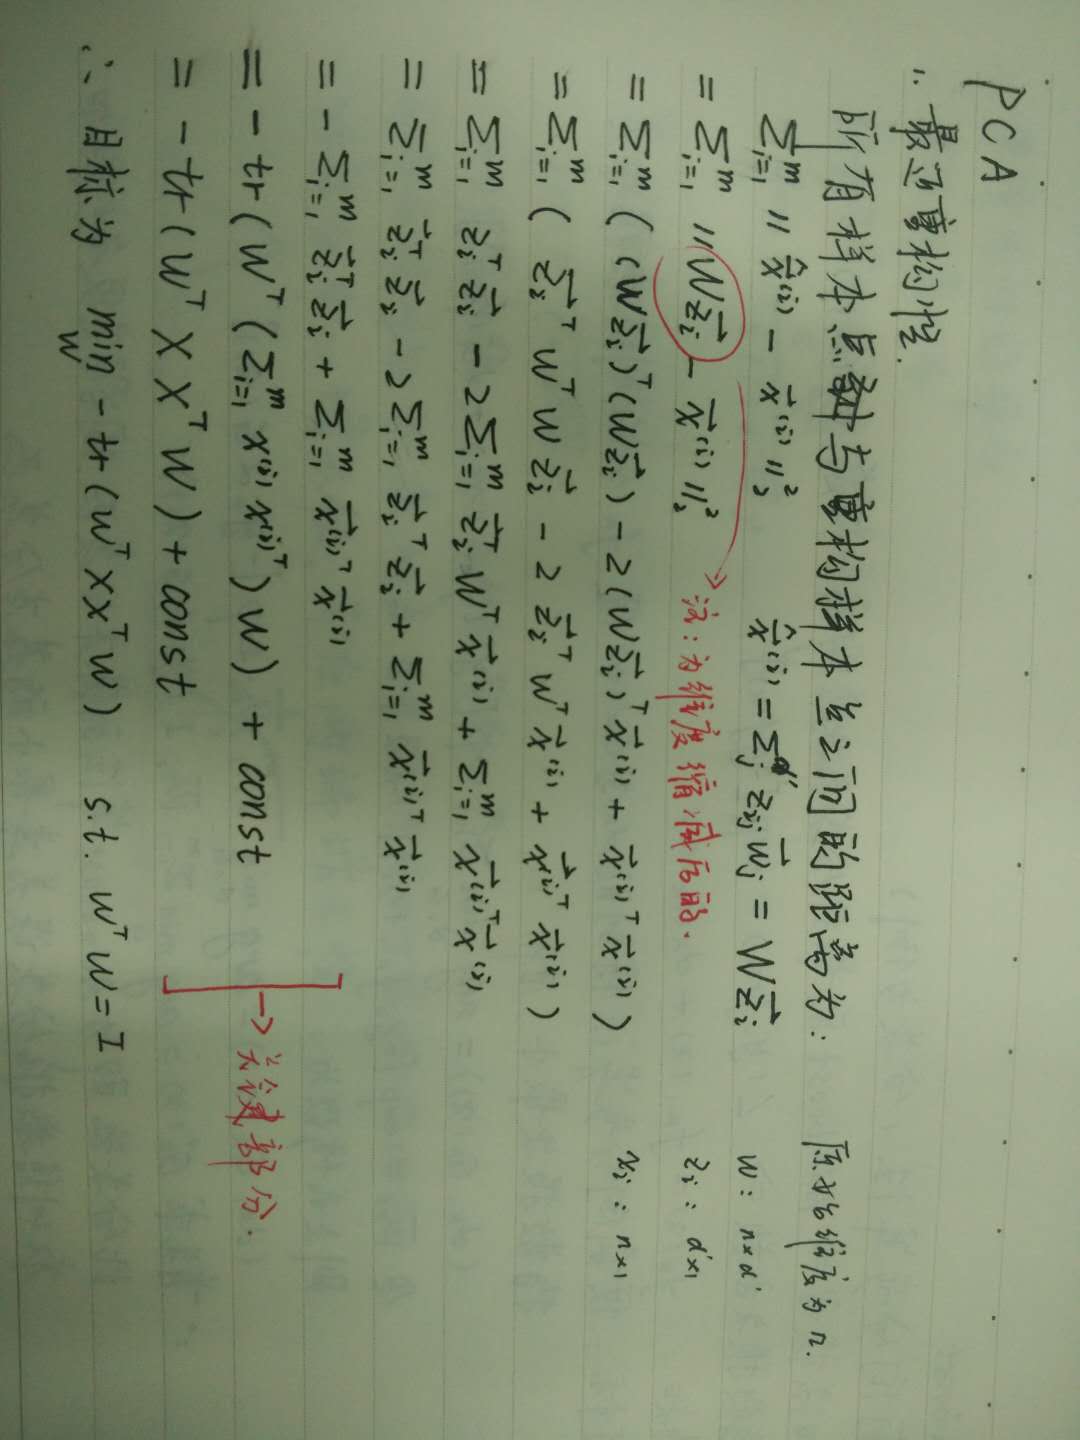 PCA
1. 最近重构性.
所有样本点与重构样本点之间的距离为: 原始维度为n.
Σᵢ₌₁ᵐ ‖x̂⁽ⁱ⁾ − x⃗⁽ⁱ⁾‖₂² x̂⁽ⁱ⁾ = Σⱼᵈ' zᵢⱼ w⃗ⱼ = W z⃗ᵢ w: n×d'
= Σᵢ₌₁ᵐ ‖W z⃗ᵢ − x⃗⁽ⁱ⁾‖₂² 注:为维度缩减后的. zᵢ: d'×1
= Σᵢ₌₁ᵐ ((W z⃗ᵢ)ᵀ(W z⃗ᵢ) − 2(W z⃗ᵢ)ᵀ x⃗⁽ⁱ⁾ + x⃗⁽ⁱ⁾ᵀ x⃗⁽ⁱ⁾) xᵢ: n×1
= Σᵢ₌₁ᵐ (z⃗ᵢᵀ Wᵀ W z⃗ᵢ − 2 z⃗ᵢᵀ Wᵀ x⃗⁽ⁱ⁾ + x⃗⁽ⁱ⁾ᵀ x⃗⁽ⁱ⁾)
= Σᵢ₌₁ᵐ z⃗ᵢᵀ z⃗ᵢ − 2 Σᵢ₌₁ᵐ z⃗ᵢᵀ Wᵀ x⃗⁽ⁱ⁾ + Σᵢ₌₁ᵐ x⃗⁽ⁱ⁾ᵀ x⃗⁽ⁱ⁾
= Σᵢ₌₁ᵐ z⃗ᵢᵀ z⃗ᵢ − 2 Σᵢ₌₁ᵐ z⃗ᵢᵀ z⃗ᵢ + Σᵢ₌₁ᵐ x⃗⁽ⁱ⁾ᵀ x⃗⁽ⁱ⁾
= − Σᵢ₌₁ᵐ z⃗ᵢᵀ z⃗ᵢ + Σᵢ₌₁ᵐ x⃗⁽ⁱ⁾ᵀ x⃗⁽ⁱ⁾
= − tr(Wᵀ(Σᵢ₌₁ᵐ x⁽ⁱ⁾ x⁽ⁱ⁾ᵀ)W) + const → 关键部分.
= − tr(Wᵀ X Xᵀ W) + const
∴ 目标为 min_W − tr(Wᵀ X Xᵀ W) s.t. WᵀW = I